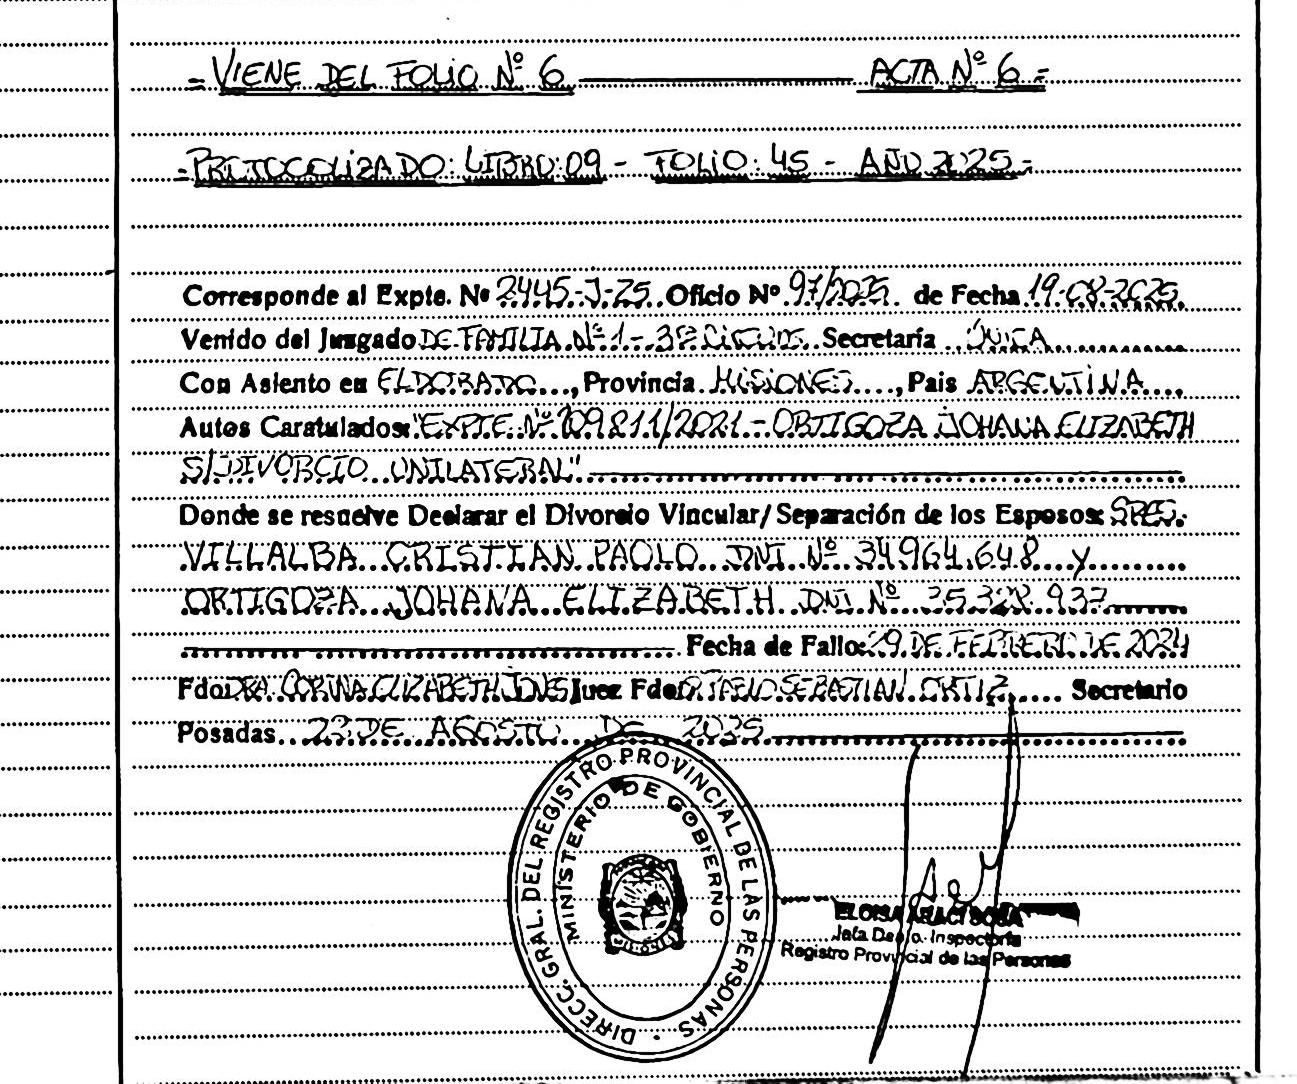 = VIENE DEL FOLIO Nº 6 ACTA Nº 6 =
= PROTOCOLIZADO: LIBRO: 09 - FOLIO: 45 - AÑO 2025 =
Corresponde al Expte. Nº 2445-J-25 Oficio Nº 97/2025 de Fecha 19-08-2025
Venido del Juzgado DE FAMILIA Nº 1 - 3ª Circuns. Secretaría ÚNICA
Con Asiento en ELDORADO, Provincia MISIONES, Pais ARGENTINA
Autos Caratulados: "EXPTE Nº 109811/2021 - ORTIGOZA JOHANA ELIZABETH
S/DIVORCIO UNILATERAL"
Donde se resuelve Declarar el Divorcio Vincular/Separación de los Esposos: SRES.
VILLALBA CRISTIAN PAOLO DNI Nº 34.964.648 y
ORTIGOZA JOHANA ELIZABETH DNI Nº 35.328.937
Fecha de Fallo: 29 DE FEBRERO DE 2024
Fdo: DRA. CORINA ELIZABETH JONES Juez Fdo SEBASTIAN ORTIZ Secretario
Posadas DE AGOSTO DE 2025
DIRECC. GRAL. DEL REGISTRO PROVINCIAL DE LAS PERSONAS
MINISTERIO DE GOBIERNO
ELOISA ARACI SOSA
Jefa Depto. Inspectoría
Registro Provincial de las Personas